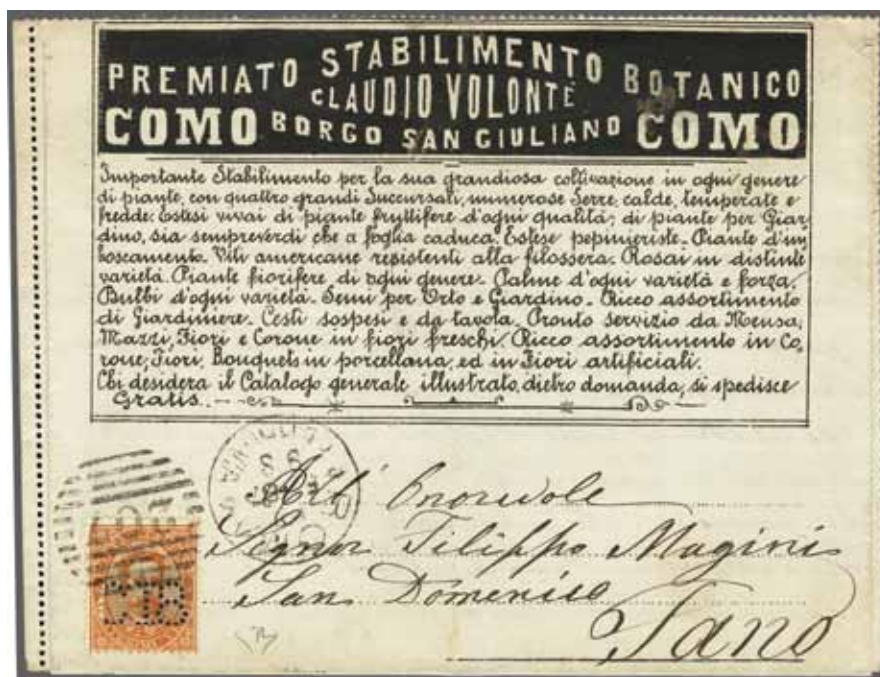 PREMIATO STABILIMENTO BOTANICO
CLAUDIO VOLONTÈ
COMO BORGO SAN GIULIANO COMO
Importante Stabilimento per la sua grandiosa coltivazione in ogni genere
di piante, con quattro grandi Succursali, numerose Serre, calde, temperate e
fredde. Estesi vivai di piante fruttifere d'ogni qualità; di piante per Giar-
dino, sia sempreverdi che a foglia caduca. Estese pepinieriste. Piante d'im
boscamento. Viti americane resistenti alla filossera. Rosai in distinte
varietà. Piante fiorifere di ogni genere. Palme d'ogni varietà e forza.
Bulbi d'ogni varietà. Semi per Orto e Giardino. Ricco assortimento
di Giardiniere. Cesti sospesi e da tavola. Pronto servizio da Mensa,
Mazzi, Fiori e Corone in fiori freschi. Ricco assortimento in Co-
rone, Fiori, Bouquets in porcellana, ed in Fiori artificiali.
Chi desidera il Catalogo generale illustrato, dietro domanda, si spedisce
Gratis.
All' Onorevole
Signor Filippo Magini
San Domenico
Fano